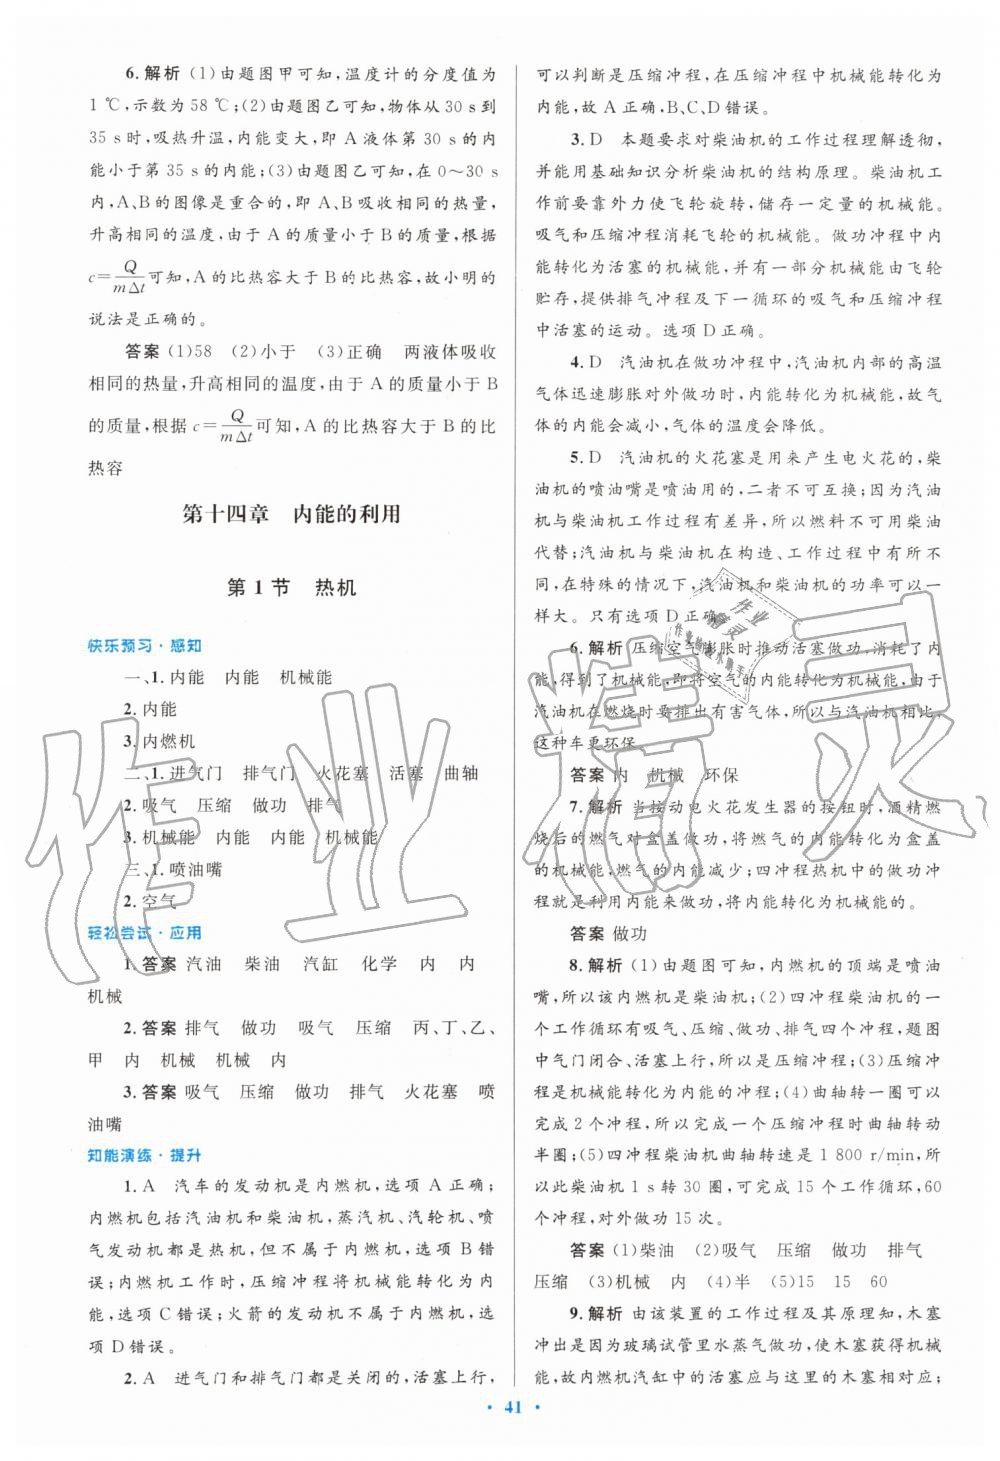 6.解析 (1)由题图甲可知,温度计的分度值为
1 ℃,示数为 58 ℃;(2)由题图乙可知,物体从30 s到
35 s时,吸热升温,内能变大,即 A 液体第 30 s 的内
能小于第 35 s的内能;(3)由题图乙可知,在 0～30 s
内,A、B的图像是重合的,即 A、B吸收相同的热量,
升高相同的温度,由于 A 的质量小于 B 的质量,根据
c=Q/mΔt可知,A 的比热容大于 B 的比热容,故小明的
说法是正确的。
答案 (1)58 (2)小于 (3)正确 两液体吸收
相同的热量,升高相同的温度,由于 A 的质量小于 B
的质量,根据 c=Q/mΔt可知,A 的比热容大于 B 的比
热容
第十四章 内能的利用
第 1 节 热机
快乐预习·感知
一、1.内能 内能 机械能
2.内能
3.内燃机
二、1.进气门 排气门 火花塞 活塞 曲轴
2.吸气 压缩 做功 排气
3.机械能 内能 内能 机械能
三、1.喷油嘴
2.空气
轻松尝试·应用
1.答案 汽油 柴油 汽缸 化学 内 内
机械
2.答案 排气 做功 吸气 压缩 丙、丁、乙、
甲 内 机械 机械 内
3.答案 吸气 压缩 做功 排气 火花塞 喷
油嘴
知能演练·提升
1. A 汽车的发动机是内燃机,选项 A正确;
内燃机包括汽油机和柴油机,蒸汽机、汽轮机、喷
气发动机都是热机,但不属于内燃机,选项 B错
误;内燃机工作时,压缩冲程将机械能转化为内
能,选项 C错误;火箭的发动机不属于内燃机,选
项 D错误。
2. A 进气门和排气门都是关闭的,活塞上行,
可以判断是压缩冲程,在压缩冲程中机械能转化为
内能,故 A 正确,B、C、D 错误。
3. D 本题要求对柴油机的工作过程理解透彻,
并能用基础知识分析柴油机的结构原理。柴油机工
作前要靠外力使飞轮旋转,储存一定量的机械能。
吸气和压缩冲程消耗飞轮的机械能。做功冲程中内
能转化为活塞的机械能,并有一部分机械能由飞轮
贮存,提供排气冲程及下一循环的吸气和压缩冲程
中活塞的运动。选项 D正确。
4. D 汽油机在做功冲程中,汽油机内部的高温
气体迅速膨胀对外做功时,内能转化为机械能,故气
体的内能会减小,气体的温度会降低。
5. D 汽油机的火花塞是用来产生电火花的,柴
油机的喷油嘴是喷油用的,二者不可互换;因为汽油
机与柴油机工作过程有差异,所以燃料不可用柴油
代替;汽油机与柴油机在构造、工作过程中有所不
同,在特殊的情况下,汽油机和柴油机的功率可以一
样大。只有选项 D正确。
6.解析 压缩空气膨胀时推动活塞做功,消耗了内
能,得到了机械能,即将空气的内能转化为机械能,由于
汽油机在燃烧时要排出有害气体,所以与汽油机相比,
这种车更环保。
答案 内 机械 环保
7.解析 当按动电火花发生器的按钮时,酒精燃
烧后的燃气对盒盖做功,将燃气的内能转化为盒盖
的机械能,燃气的内能减少;四冲程热机中的做功冲
程就是利用内能来做功,将内能转化为机械能的。
答案 做功
8.解析 (1)由题图可知,内燃机的顶端是喷油
嘴,所以该内燃机是柴油机;(2)四冲程柴油机的一
个工作循环有吸气、压缩、做功、排气四个冲程,题图
中气门闭合、活塞上行,所以是压缩冲程;(3)压缩冲
程是机械能转化为内能的冲程;(4)曲轴转一圈可以
完成 2 个冲程,所以完成一个压缩冲程时曲轴转动
半圈;(5)四冲程柴油机曲轴转速是 1 800 r/min,所
以此柴油机 1 s 转 30 圈,可完成 15 个工作循环,60
个冲程,对外做功 15 次。
答案 (1)柴油 (2)吸气 压缩 做功 排气
压缩 (3)机械 内 (4)半 (5)15 15 60
9.解析 由该装置的工作过程及其原理知,木塞
冲出是因为玻璃试管里水蒸气做功,使木塞获得机械
能,故内燃机汽缸中的活塞应与这里的木塞相对应;
· 41 ·
作业精灵
作业
精灵